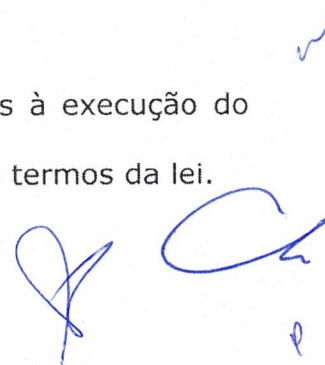 s à execução do
termos da lei.